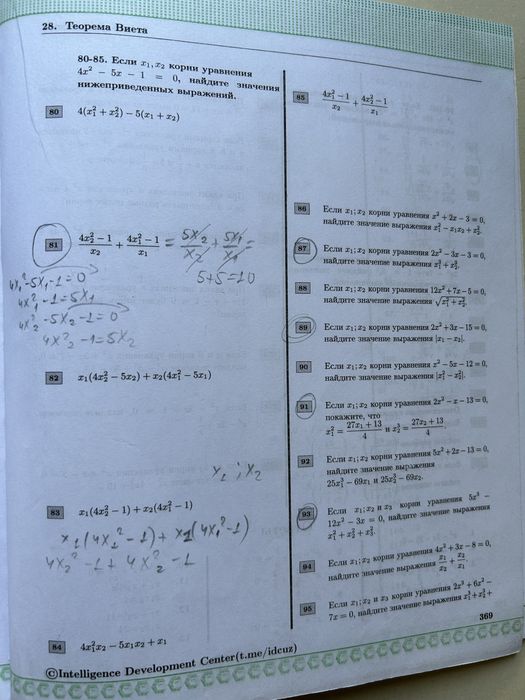 28. Теорема Виета
80-85. Если x₁, x₂ корни уравнения
4x² − 5x − 1 = 0, найдите значения
нижеприведенных выражений.
80 4(x₁² + x₂²) − 5(x₁ + x₂)
81 (4x₂² − 1)/x₂ + (4x₁² − 1)/x₁ = 5x₂/x₂ + 5x₁/x₁ =
5+5=10
4x₁² − 5x₁ − 1 = 0
4x₁² − 1 = 5x₁
4x₂² − 5x₂ − 1 = 0
4x₂² − 1 = 5x₂
82 x₁(4x₂² − 5x₂) + x₂(4x₁² − 5x₁)
x₁ ; x₂
83 x₁(4x₂² − 1) + x₂(4x₁² − 1)
4x₂² − 1 + 4x₂² − 1
84 4x₁²x₂ − 5x₁x₂ + x₁
85 (4x₁² − 1)/x₂ + (4x₂² − 1)/x₁
86 Если x₁; x₂ корни уравнения x² + 2x − 3 = 0,
найдите значение выражения x₁² − x₁x₂ + x₂².
87 Если x₁; x₂ корни уравнения 2x² − 3x − 3 = 0,
найдите значение выражения
88 Если x₁; x₂ корни уравнения 12x² + 7x − 5 = 0,
найдите значение выражения
89 Если x₁; x₂ корни уравнения 2x² + 3x − 15 = 0,
найдите значение выражения |x₁ − x₂|.
90 Если x₁; x₂ корни уравнения x² − 5x − 12 = 0,
найдите значение выражения
91 Если x₁; x₂ корни уравнения 2x² − x − 13 = 0,
покажите, что
(27x₁ + 13)/4 и (27x₂ + 13)/4
92 Если x₁; x₂ корни уравнения 5x² + 2x − 13 = 0,
найдите значение выражения
25x₁³ − 69x₁ и 25x₂³ − 69x₂.
93 Если x₁; x₂ и x₃ корни уравнения 5x³ −
12x² − 3x = 0, найдите значение выражения
94 Если x₁; x₂ корни уравнения 4x² + 3x − 8 = 0,
найдите значение выражения x₁/x₂ + x₂/x₁.
95 Если x₁; x₂ и x₃ корни уравнения 2x³ + 6x² −
7x = 0, найдите значение выражения
369
©Intelligence Development Center(t.me/idcuz)